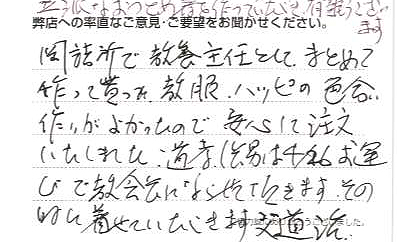 立派なおつとめ着を作っていただき有難うござい
ます
弊店への率直なご意見・ご要望をお聞かせください。
詰所で教養主任として まとめて
作って貰った教服、ハッピの色合
作りがよかったので 安心して注文
いたしました。
お運
びで教会長にならせて頂きます。その
時に着せていただきます
ました。